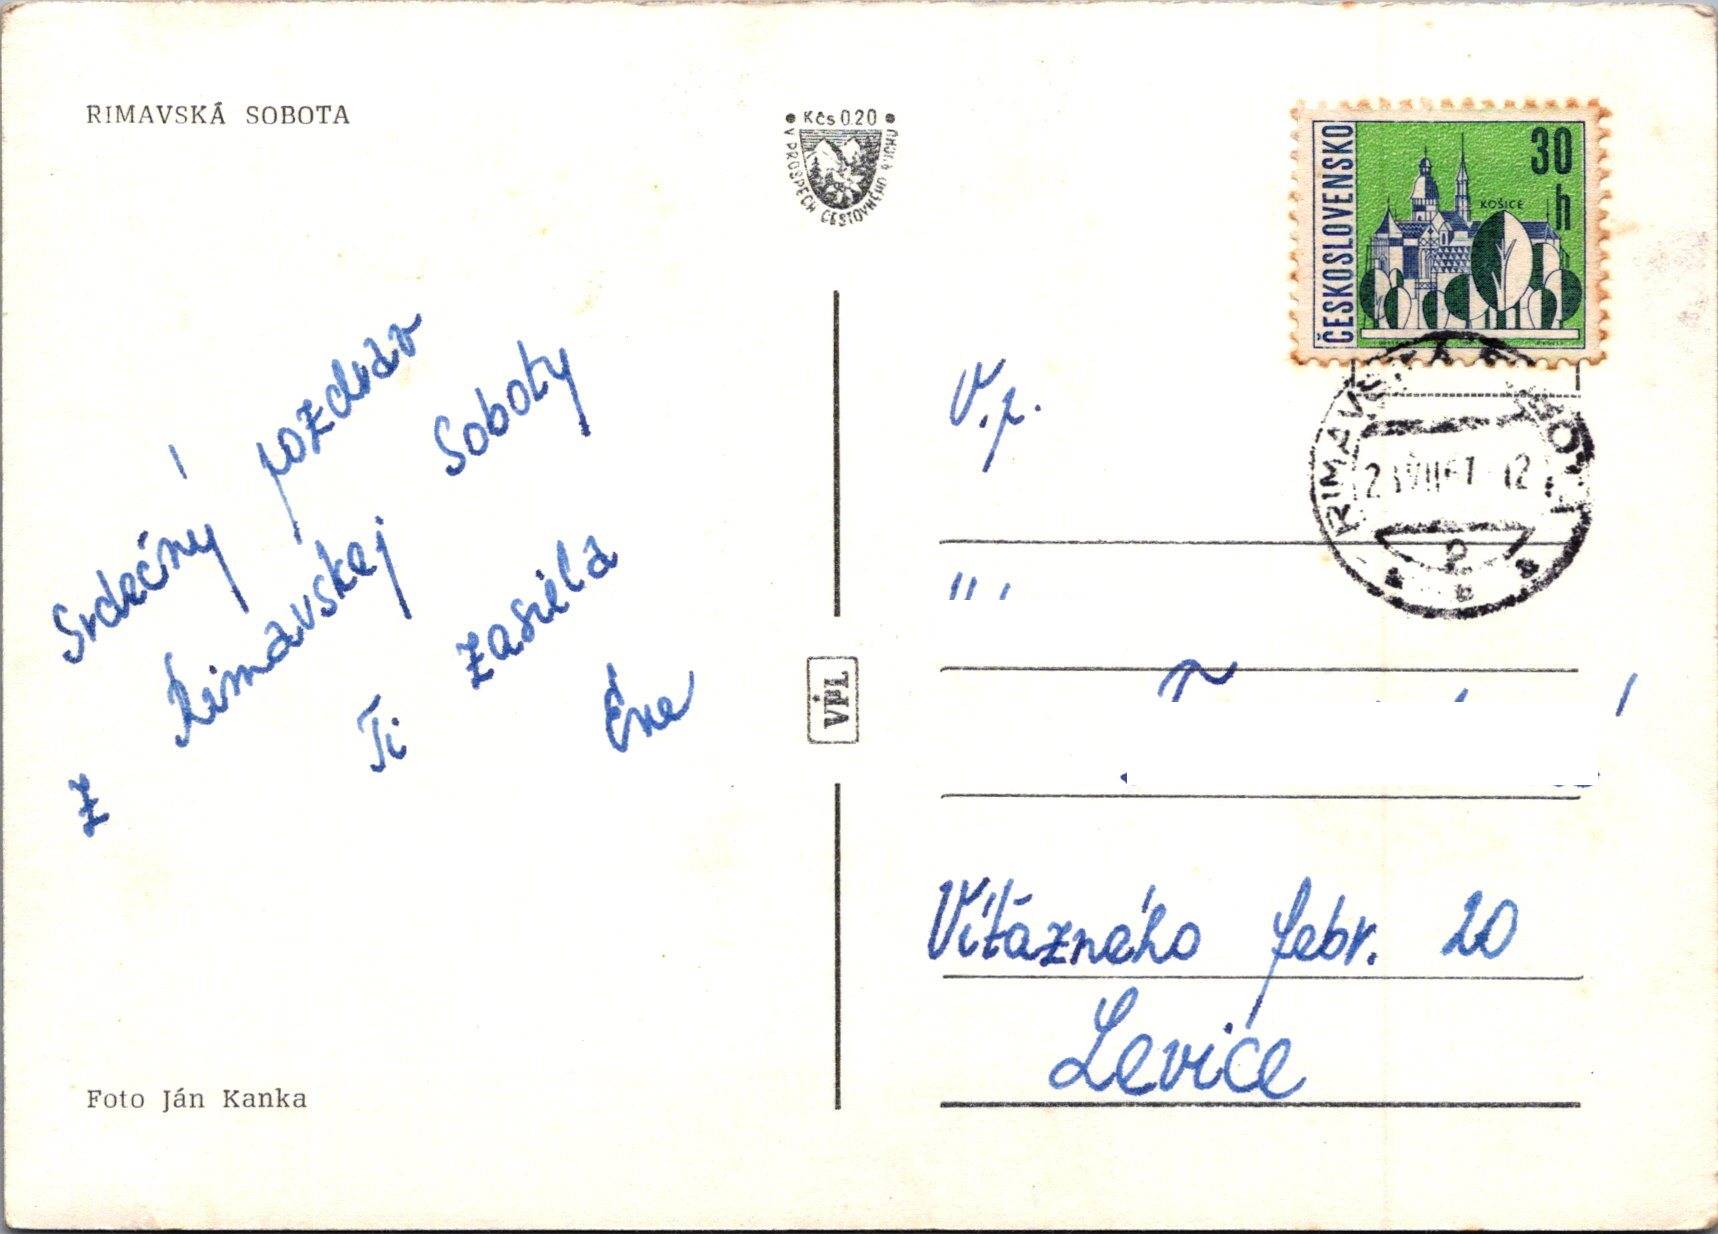 RIMAVSKÁ SOBOTA
• Kčs 0.20 •
V PROSPECH CESTOVNÉHO RUCHU
ČESKOSLOVENSKO
30
h
KOŠICE
RIMAVSKÁ SOBOTA
Srdečný pozdrav
z Rimavskej Soboty
Ti zasiela
Eva
VPL
V.p.
Víťázného febr. 20
Levice
Foto Ján Kanka